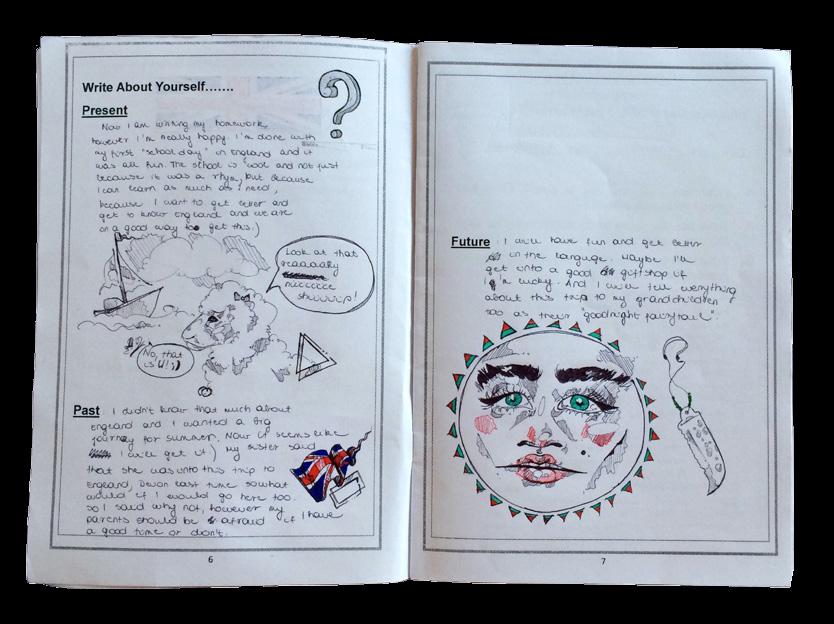 Write About Yourself.......
Present
Now I am writing my homework
however I'm really happy. I'm done with
my first "school day" in England and it
was all fun. The school is cool and not just
because it was a rhym, but because
I can learn as much as I need,
because I want to get better and
get to know England and we are
on a good way to get this :)
Look at that
reaaaally
niiccccce
shiiiiip!
No, that
is U! ;)
Past I didn't know that much about
England and I wanted a big
journey for summer. Now it seems like
I will get it :) My sister said
that she was unto this trip to
England, Devon last time so what
would if I would go here too.
So I said why not, however my
parents should be afraid if I have
a good time or don't.
6
Future : I will have fun and get better
in the language. Maybe I'll
get unto a good giftshop if
I'm lucky. And I will tell everything
about this trip to my grandchildren
too as their "goodnight fairytail".
7